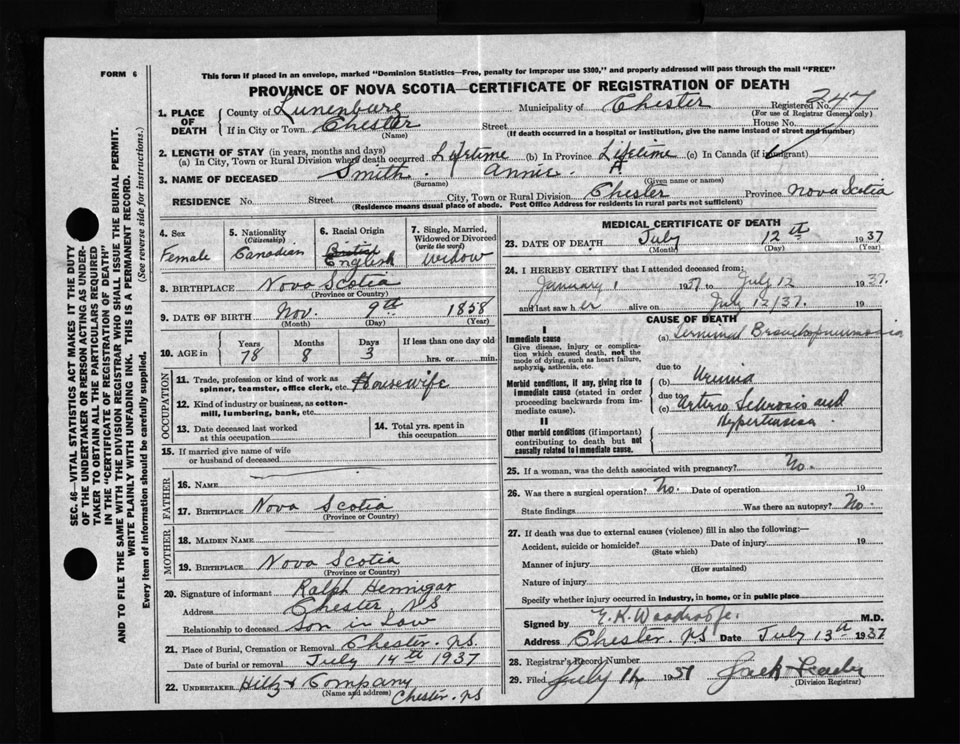 FORM 6
This form if placed in an envelope, marked "Dominion Statistics—Free, penalty for improper use $300," and properly addressed will pass through the mail "FREE"
PROVINCE OF NOVA SCOTIA—CERTIFICATE OF REGISTRATION OF DEATH
1. PLACE OF DEATH
County of Lunenburg Municipality of Chester Registered No. 247
(For use of Registrar General only)
If in City or Town Chester Street House No.
(Name) (If death occurred in a hospital or institution, give the name instead of street and number)
2. LENGTH OF STAY (in years, months and days)
(a) In City, Town or Rural Division where death occurred Lifetime (b) In Province Lifetime (c) In Canada (if immigrant)
3. NAME OF DECEASED Smith. Annie. A
(Surname) (Given name or names)
RESIDENCE No. Street City, Town or Rural Division Chester Province Nova Scotia
(Residence means usual place of abode. Post Office Address for residents in rural parts not sufficient)
4. Sex
Female
5. Nationality
(Citizenship)
Canadian
6. Racial Origin
English
7. Single, Married, Widowed or Divorced
(write the word)
Widow
8. BIRTHPLACE Nova Scotia
(Province or Country)
9. DATE OF BIRTH Nov. 9th 1858
(Month) (Day) (Year)
10. AGE in
Years Months Days If less than one day old
78 8 3 hrs. or min.
OCCUPATION
11. Trade, profession or kind of work as spinner, teamster, office clerk, etc. Housewife
12. Kind of industry or business, as cotton-mill, lumbering, bank, etc.
13. Date deceased last worked at this occupation
14. Total yrs. spent in this occupation
15. If married give name of wife or husband of deceased
FATHER
16. Name
17. BIRTHPLACE Nova Scotia
(Province or Country)
MOTHER
18. MAIDEN NAME
19. BIRTHPLACE Nova Scotia
(Province or Country)
20. Signature of informant Ralph Hennigar
Address Chester NS
Relationship to deceased Son in Law
21. Place of Burial, Cremation or Removal Chester. NS
Date of burial or removal July 14th 1937
22. UNDERTAKER Hiltz & Company
(Name and address) Chester. NS
MEDICAL CERTIFICATE OF DEATH
23. DATE OF DEATH July 12th 1937
(Month) (Day) (Year)
24. I HEREBY CERTIFY that I attended deceased from:
January 1 1937 to July 12 1937.
and last saw her alive on July 12/37.
CAUSE OF DEATH
I
Immediate cause
Give disease, injury or complication which caused death, not the mode of dying, such as heart failure, asphyxia, asthenia, etc.
(a) Terminal Bronchopneumonia
due to
Morbid conditions, if any, giving rise to immediate cause (stated in order proceeding backwards from immediate cause).
(b) Uremia
due to
(c) Arterio Sclerosis and
Hypertension
II
Other morbid conditions (if important) contributing to death but not causally related to immediate cause.
25. If a woman, was the death associated with pregnancy? No.
26. Was there a surgical operation? No. Date of operation 19
State findings Was there an autopsy? No.
27. If death was due to external causes (violence) fill in also the following:—
Accident, suicide or homicide? Date of injury 19
(State which)
Manner of injury
(How sustained)
Nature of injury
Specify whether injury occurred in industry, in home, or in public place
Signed by E. K. Woodroofe. M.D.
Address Chester NS Date July 13th 1937
28. Registrar's Record Number
29. Filed July 14 1937
(Division Registrar)
SEC. 46—VITAL STATISTICS ACT MAKES IT THE DUTY
OF THE UNDERTAKER OR PERSON ACTING AS UNDER-
TAKER TO OBTAIN ALL THE PARTICULARS REQUIRED
IN THE "CERTIFICATE OF REGISTRATION OF DEATH"
AND TO FILE THE SAME WITH THE DIVISION REGISTRAR WHO SHALL ISSUE THE BURIAL PERMIT.
WRITE PLAINLY WITH UNFADING INK. THIS IS A PERMANENT RECORD.
Every item of information should be carefully supplied. (See reverse side for instructions.)